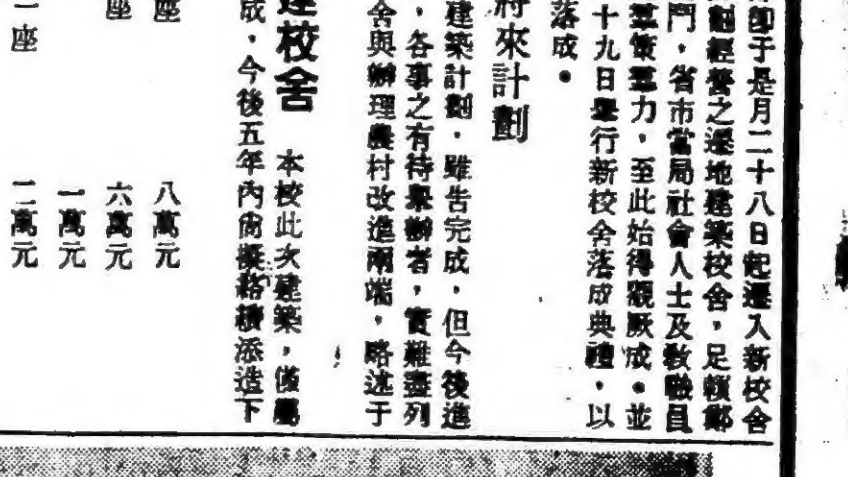 卽于是月二十八日起遷入新校舍
劃經營之遷地建築校舍，足賴鄭
門，省市當局社會人士及敎職員
羣策羣力，至此始得觀厥成。並
十九日舉行新校舍落成典禮，以
落成。
將來計劃
建築計劃，雖吿完成，但今後進
，各事之有待舉辦者，實難盡列
舍與辦理農村改進兩端，略述于
建校舍　本校此次建築，僅屬
成，今後五年內尙擬絡續添造下
座　八萬元
座　六萬元
一萬元
一座　二萬元